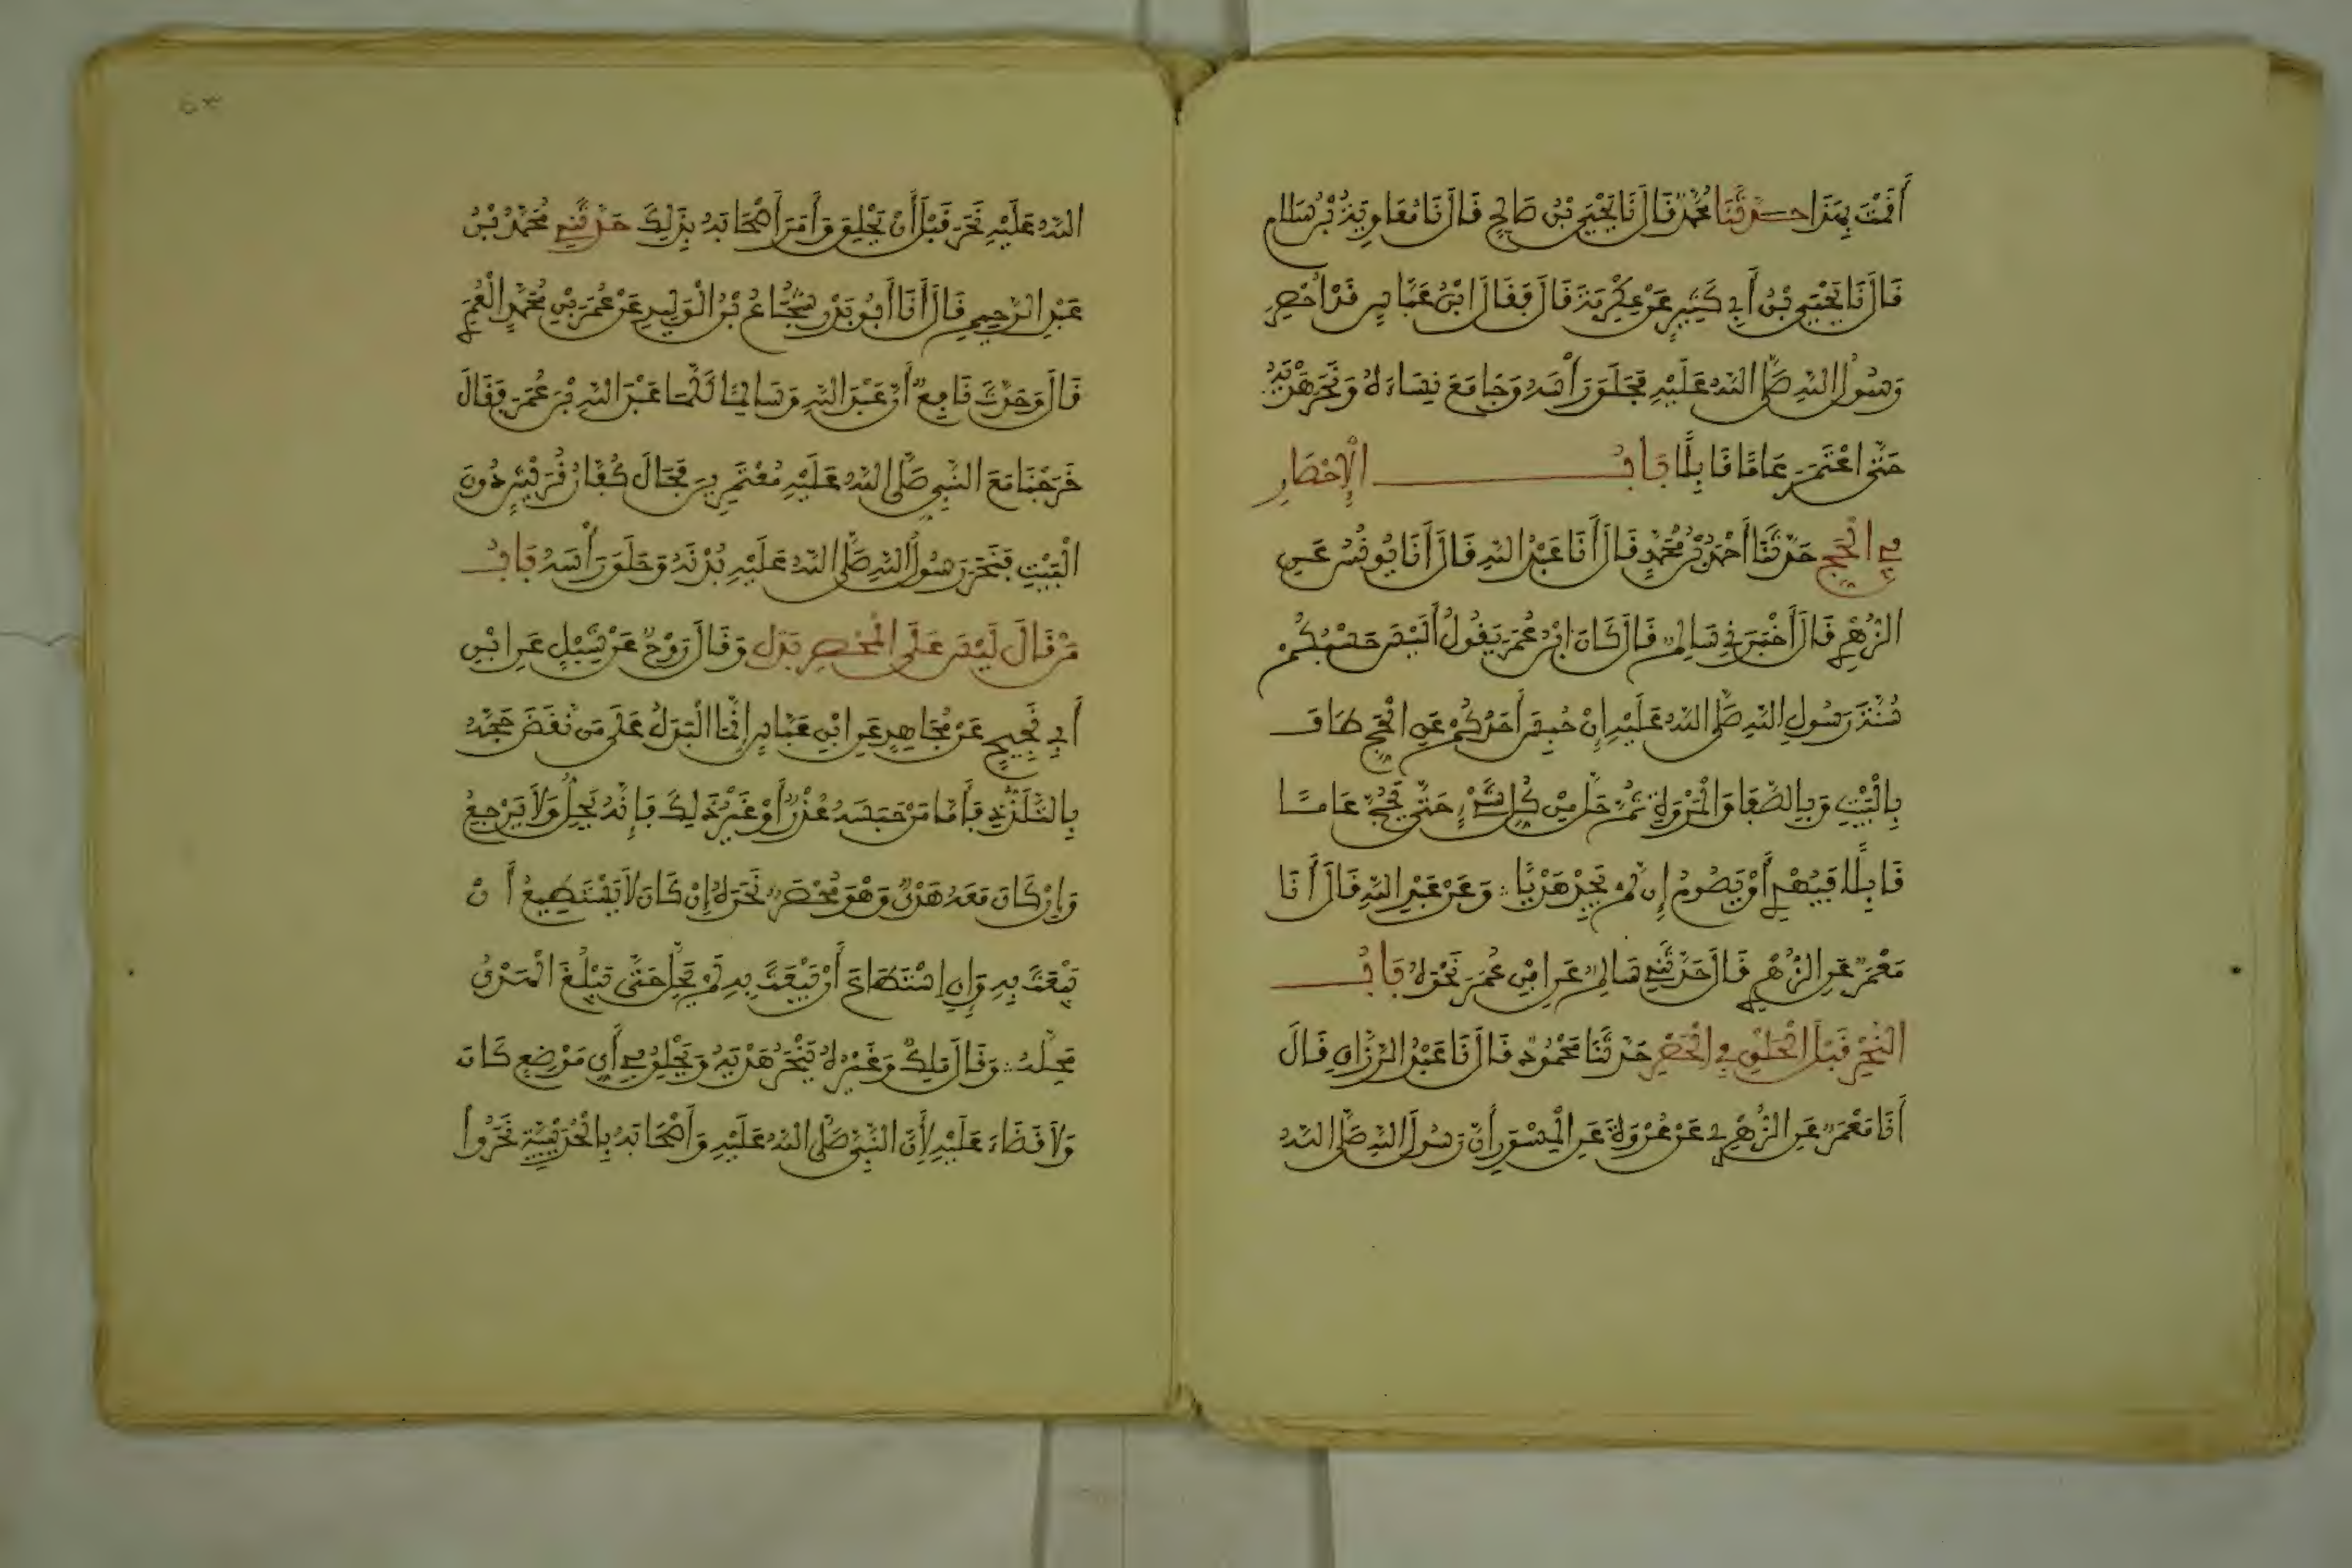 أَقَمْتَ بِهَذَا حَدَّثَنَا مُحَمَّدٌ قَالَ نَا يَحْيَى بْنُ صَالِحٍ قَالَ نَا مُعَاوِيَةُ بْنُ سَلَّامٍ
قَالَ نَا يَحْيَى بْنُ أَبِي كَثِيرٍ عَنْ عِكْرِمَةَ قَالَ فَقَالَ ابْنُ عَبَّاسٍ قَدْ أُحْصِرَ
رَسُولُ اللَّهِ صَلَّى اللَّهُ عَلَيْهِ فَحَلَقَ رَأْسَهُ وَجَامَعَ نِسَاءَهُ وَنَحَرَ هَدْيَهُ
حَتَّى اعْتَمَرَ عَامًا قَابِلًا بَابُ الْإِحْصَارِ
فِي الْحَجِّ حَدَّثَنَا أَحْمَدُ بْنُ مُحَمَّدٍ قَالَ أَنَا عَبْدُ اللَّهِ قَالَ أَنَا يُونُسُ عَنِ
الزُّهْرِيِّ قَالَ أَخْبَرَنِي سَالِمٌ قَالَ كَانَ ابْنُ عُمَرَ يَقُولُ أَلَيْسَ حَسْبُكُمْ
سُنَّةَ رَسُولِ اللَّهِ صَلَّى اللَّهُ عَلَيْهِ إِنْ حُبِسَ أَحَدُكُمْ عَنِ الْحَجِّ طَافَ
بِالْبَيْتِ وَبِالصَّفَا وَالْمَرْوَةِ ثُمَّ حَلَّ مِنْ كُلِّ شَيْءٍ حَتَّى يَحُجَّ عَامًا
قَابِلًا فَيُهْدِي أَوْ يَصُومُ إِنْ لَمْ يَجِدْ هَدْيًا وَعَنْ عَبْدِ اللَّهِ قَالَ أَنَا
مَعْمَرٌ عَنِ الزُّهْرِيِّ قَالَ حَدَّثَنِي سَالِمٌ عَنِ ابْنِ عُمَرَ نَحْوَهُ بَابُ
النَّحْرِ قَبْلَ الْحَلْقِ فِي الْحَصْرِ حَدَّثَنَا مَحْمُودٌ قَالَ نَا عَبْدُ الرَّزَّاقِ قَالَ
أَنَا مَعْمَرٌ عَنِ الزُّهْرِيِّ عَنْ عُرْوَةَ عَنِ الْمِسْوَرِ أَنَّ رَسُولَ اللَّهِ صَلَّى اللَّهُ
٥٣
اللَّهُ عَلَيْهِ نَحَرَ قَبْلَ أَنْ يَحْلِقَ وَأَمَرَ أَصْحَابَهُ بِذَلِكَ حَدَّثَنِي مُحَمَّدُ بْنُ
عَبْدِ الرَّحِيمِ قَالَ أَنَا أَبُو بَدْرٍ شُجَاعُ بْنُ الْوَلِيدِ عَنْ عُمَرَ بْنِ مُحَمَّدٍ الْعُمَرِيِّ
قَالَ وَحَدَّثَ نَافِعٌ أَنَّ عَبْدَ اللَّهِ وَسَالِمًا كَلَّمَا عَبْدَ اللَّهِ بْنَ عُمَرَ فَقَالَ
خَرَجْنَا مَعَ النَّبِيِّ صَلَّى اللَّهُ عَلَيْهِ مُعْتَمِرِينَ فَحَالَ كُفَّارُ قُرَيْشٍ دُونَ
الْبَيْتِ فَنَحَرَ رَسُولُ اللَّهِ صَلَّى اللَّهُ عَلَيْهِ بُدْنَهُ وَحَلَقَ رَأْسَهُ بَابُ
مَنْ قَالَ لَيْسَ عَلَى الْمُحْصَرِ بَدَلٌ وَقَالَ رَوْحٌ عَنْ شِبْلٍ عَنِ ابْنِ
أَبِي نَجِيحٍ عَنْ مُجَاهِدٍ عَنِ ابْنِ عَبَّاسٍ إِنَّمَا الْبَدَلُ عَلَى مَنْ نَقَضَ حَجَّهُ
بِالتَّلَذُّذِ فَأَمَّا مَنْ حَبَسَهُ عُذْرٌ أَوْ غَيْرُ ذَلِكَ فَإِنَّهُ يَحِلُّ وَلَا يَرْجِعُ
وَإِنْ كَانَ مَعَهُ هَدْيٌ وَهُوَ مُحْصَرٌ نَحَرَهُ إِنْ كَانَ لَا يَسْتَطِيعُ أَنْ
يَبْعَثَ بِهِ وَإِنِ اسْتَطَاعَ أَنْ يَبْعَثَ بِهِ لَمْ يَحِلَّ حَتَّى يَبْلُغَ الْهَدْيُ
مَحِلَّهُ وَقَالَ مَلِكٌ وَغَيْرُهُ يَنْحَرُ هَدْيَهُ وَيَحْلِقُ فِي أَيِّ مَوْضِعٍ كَانَ
وَلَا قَضَاءَ عَلَيْهِ لِأَنَّ النَّبِيَّ صَلَّى اللَّهُ عَلَيْهِ وَأَصْحَابَهُ بِالْحُدَيْبِيَةِ نَحَرُوا